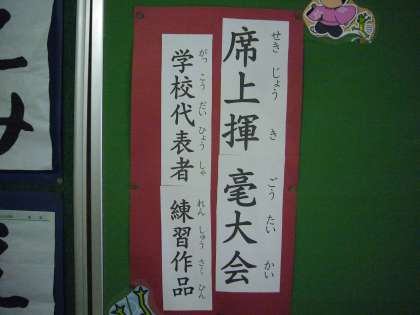 席上揮毫大会
せきじょうきごうたいかい
学校代表者練習作品
がっこうだいひょうしゃれんしゅうさくひん